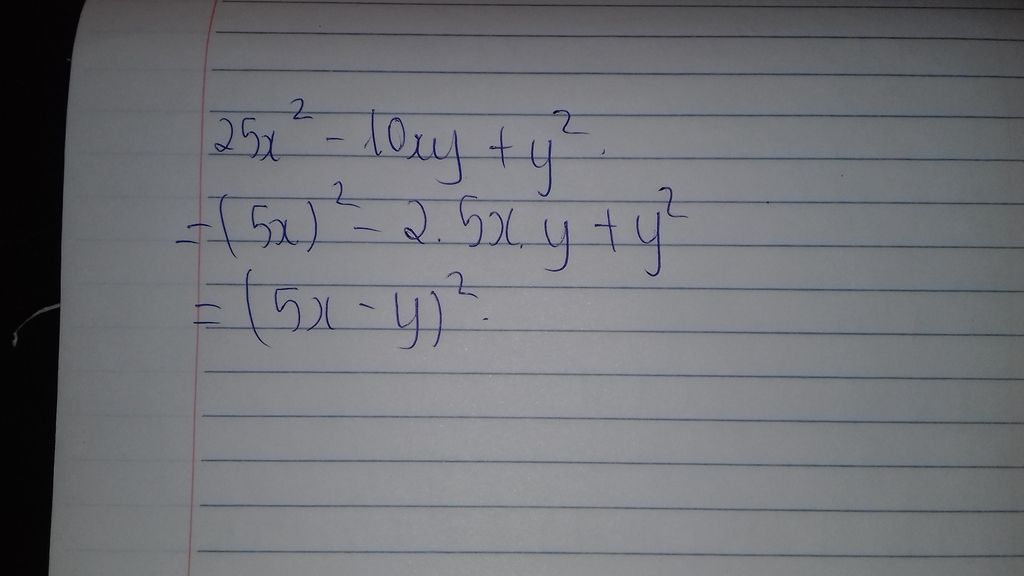 25x² - 10xy + y².
= (5x)² - 2.5x.y + y²
= (5x - y)².